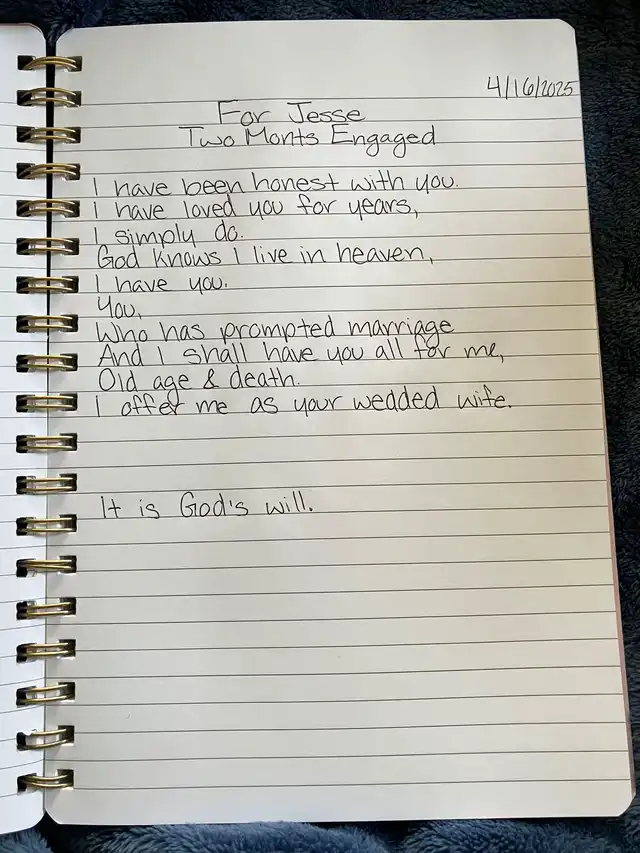 4/16/2025
For Jesse
Two Monts Engaged
I have been honest with you.
I have loved you for years,
I simply do.
God knows I live in heaven,
I have you.
You,
Who has prompted marriage
And I shall have you all for me,
Old age & death.
I offer me as your wedded wife.
It is God's will.